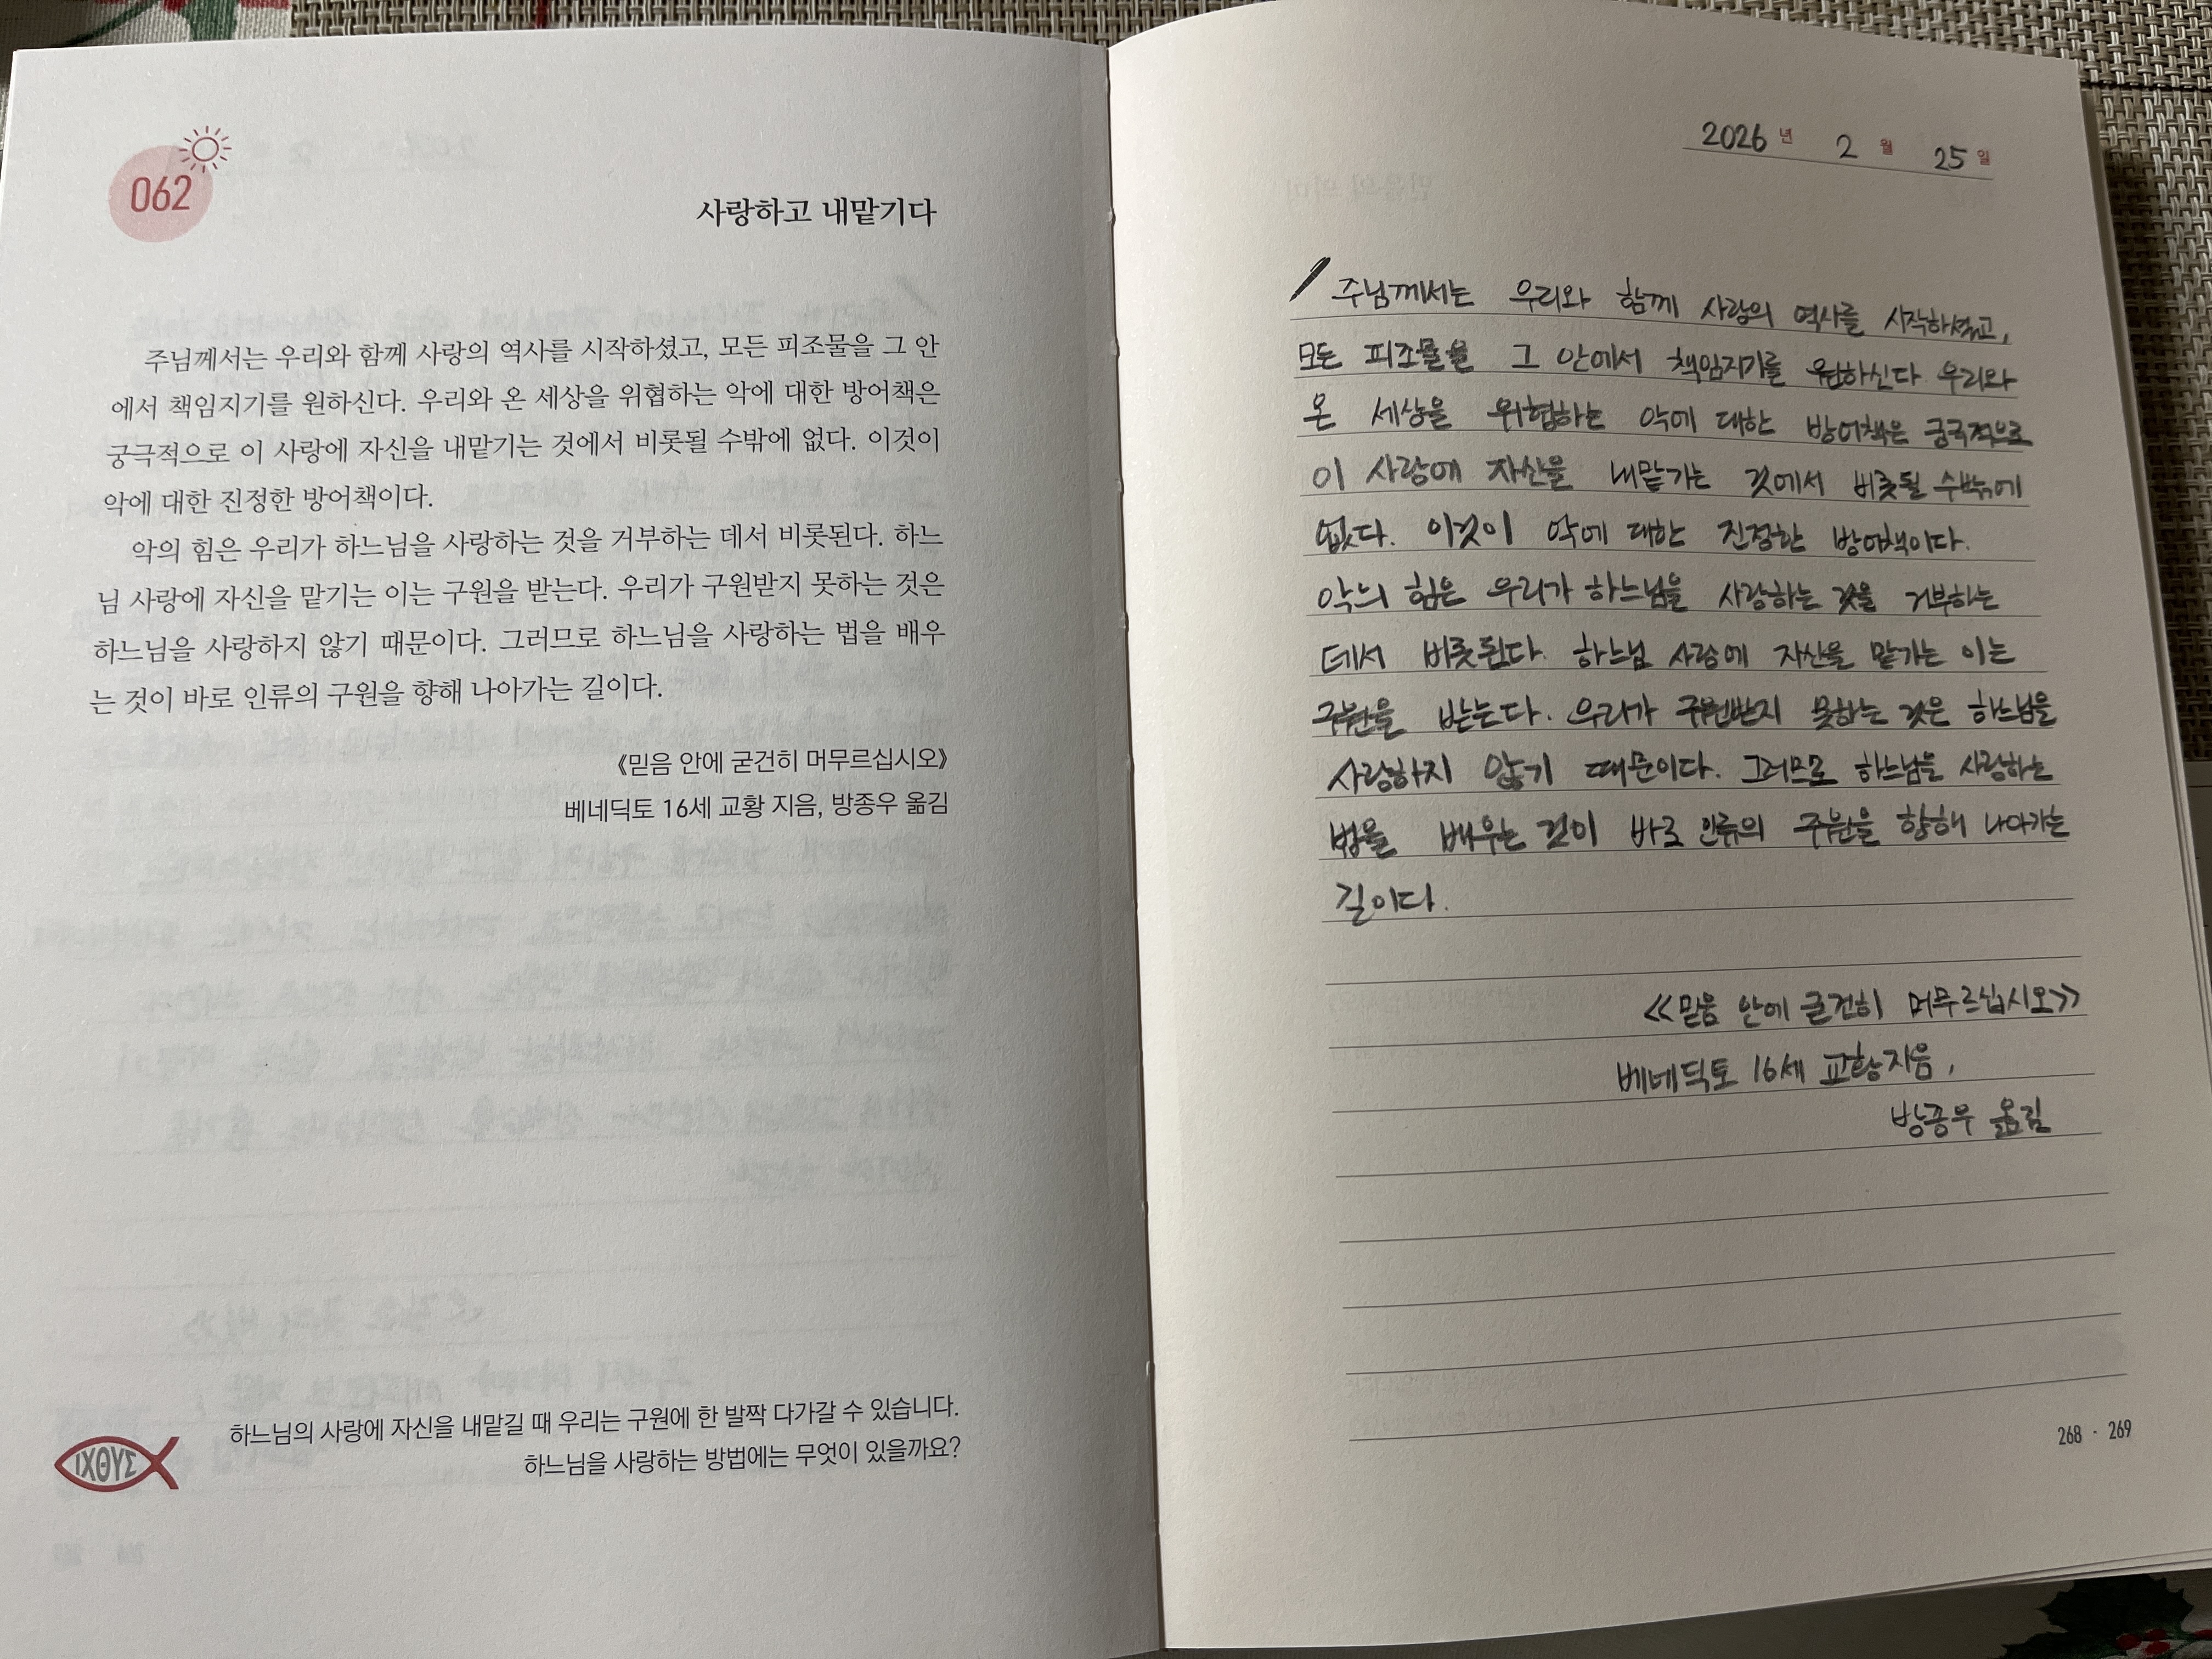 062
사랑하고 내맡기다
주님께서는 우리와 함께 사랑의 역사를 시작하셨고, 모든 피조물을 그 안
에서 책임지기를 원하신다. 우리와 온 세상을 위협하는 악에 대한 방어책은
궁극적으로 이 사랑에 자신을 내맡기는 것에서 비롯될 수밖에 없다. 이것이
악에 대한 진정한 방어책이다.
악의 힘은 우리가 하느님을 사랑하는 것을 거부하는 데서 비롯된다. 하느
님 사랑에 자신을 맡기는 이는 구원을 받는다. 우리가 구원받지 못하는 것은
하느님을 사랑하지 않기 때문이다. 그러므로 하느님을 사랑하는 법을 배우
는 것이 바로 인류의 구원을 향해 나아가는 길이다.
《믿음 안에 굳건히 머무르십시오》
베네딕토 16세 교황 지음, 방종우 옮김
하느님의 사랑에 자신을 내맡길 때 우리는 구원에 한 발짝 다가갈 수 있습니다.
하느님을 사랑하는 방법에는 무엇이 있을까요?
ΙΧΘΥΣ
2026 년 2 월 25 일
주님께서는 우리와 함께 사랑의 역사를 시작하셨고,
모든 피조물을 그 안에서 책임지기를 원하신다 우리와
온 세상을 위협하는 악에 대한 방어책은 궁극적으로
이 사랑에 자신을 내맡기는 것에서 비롯될 수밖에
없다. 이것이 악에 대한 진정한 방어책이다.
악의 힘은 우리가 하느님을 사랑하는 것을 거부하는
데서 비롯된다. 하느님 사랑에 자신을 맡기는 이는
구원을 받는다. 우리가 구원받지 못하는 것은 하느님을
사랑하지 않기 때문이다. 그러므로 하느님을 사랑하는
법을 배우는 것이 바로 인류의 구원을 향해 나아가는
길이다.
<<믿음 안에 굳건히 머무르십시오>>
베네딕토 16세 교황 지음,
방종우 옮김
268 · 269